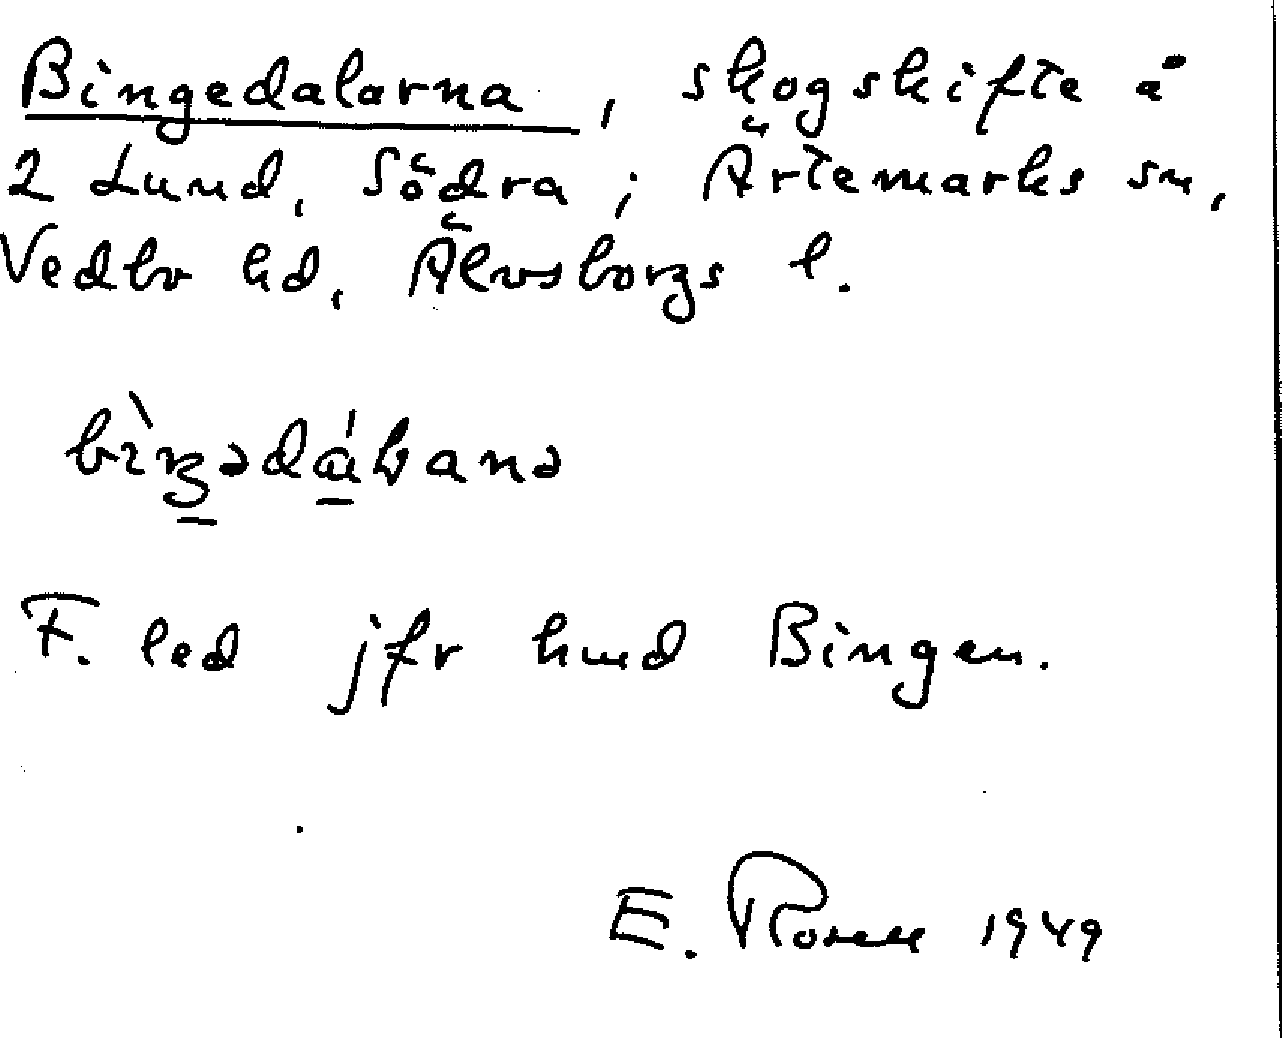 Bingedalarna, skogskifte å
2 Lund, Södra; Ärtemarks sn,
Vedbo hd, Älvsborgs l.
F. led jfr hmd Bingen.
E. Rosell 1949